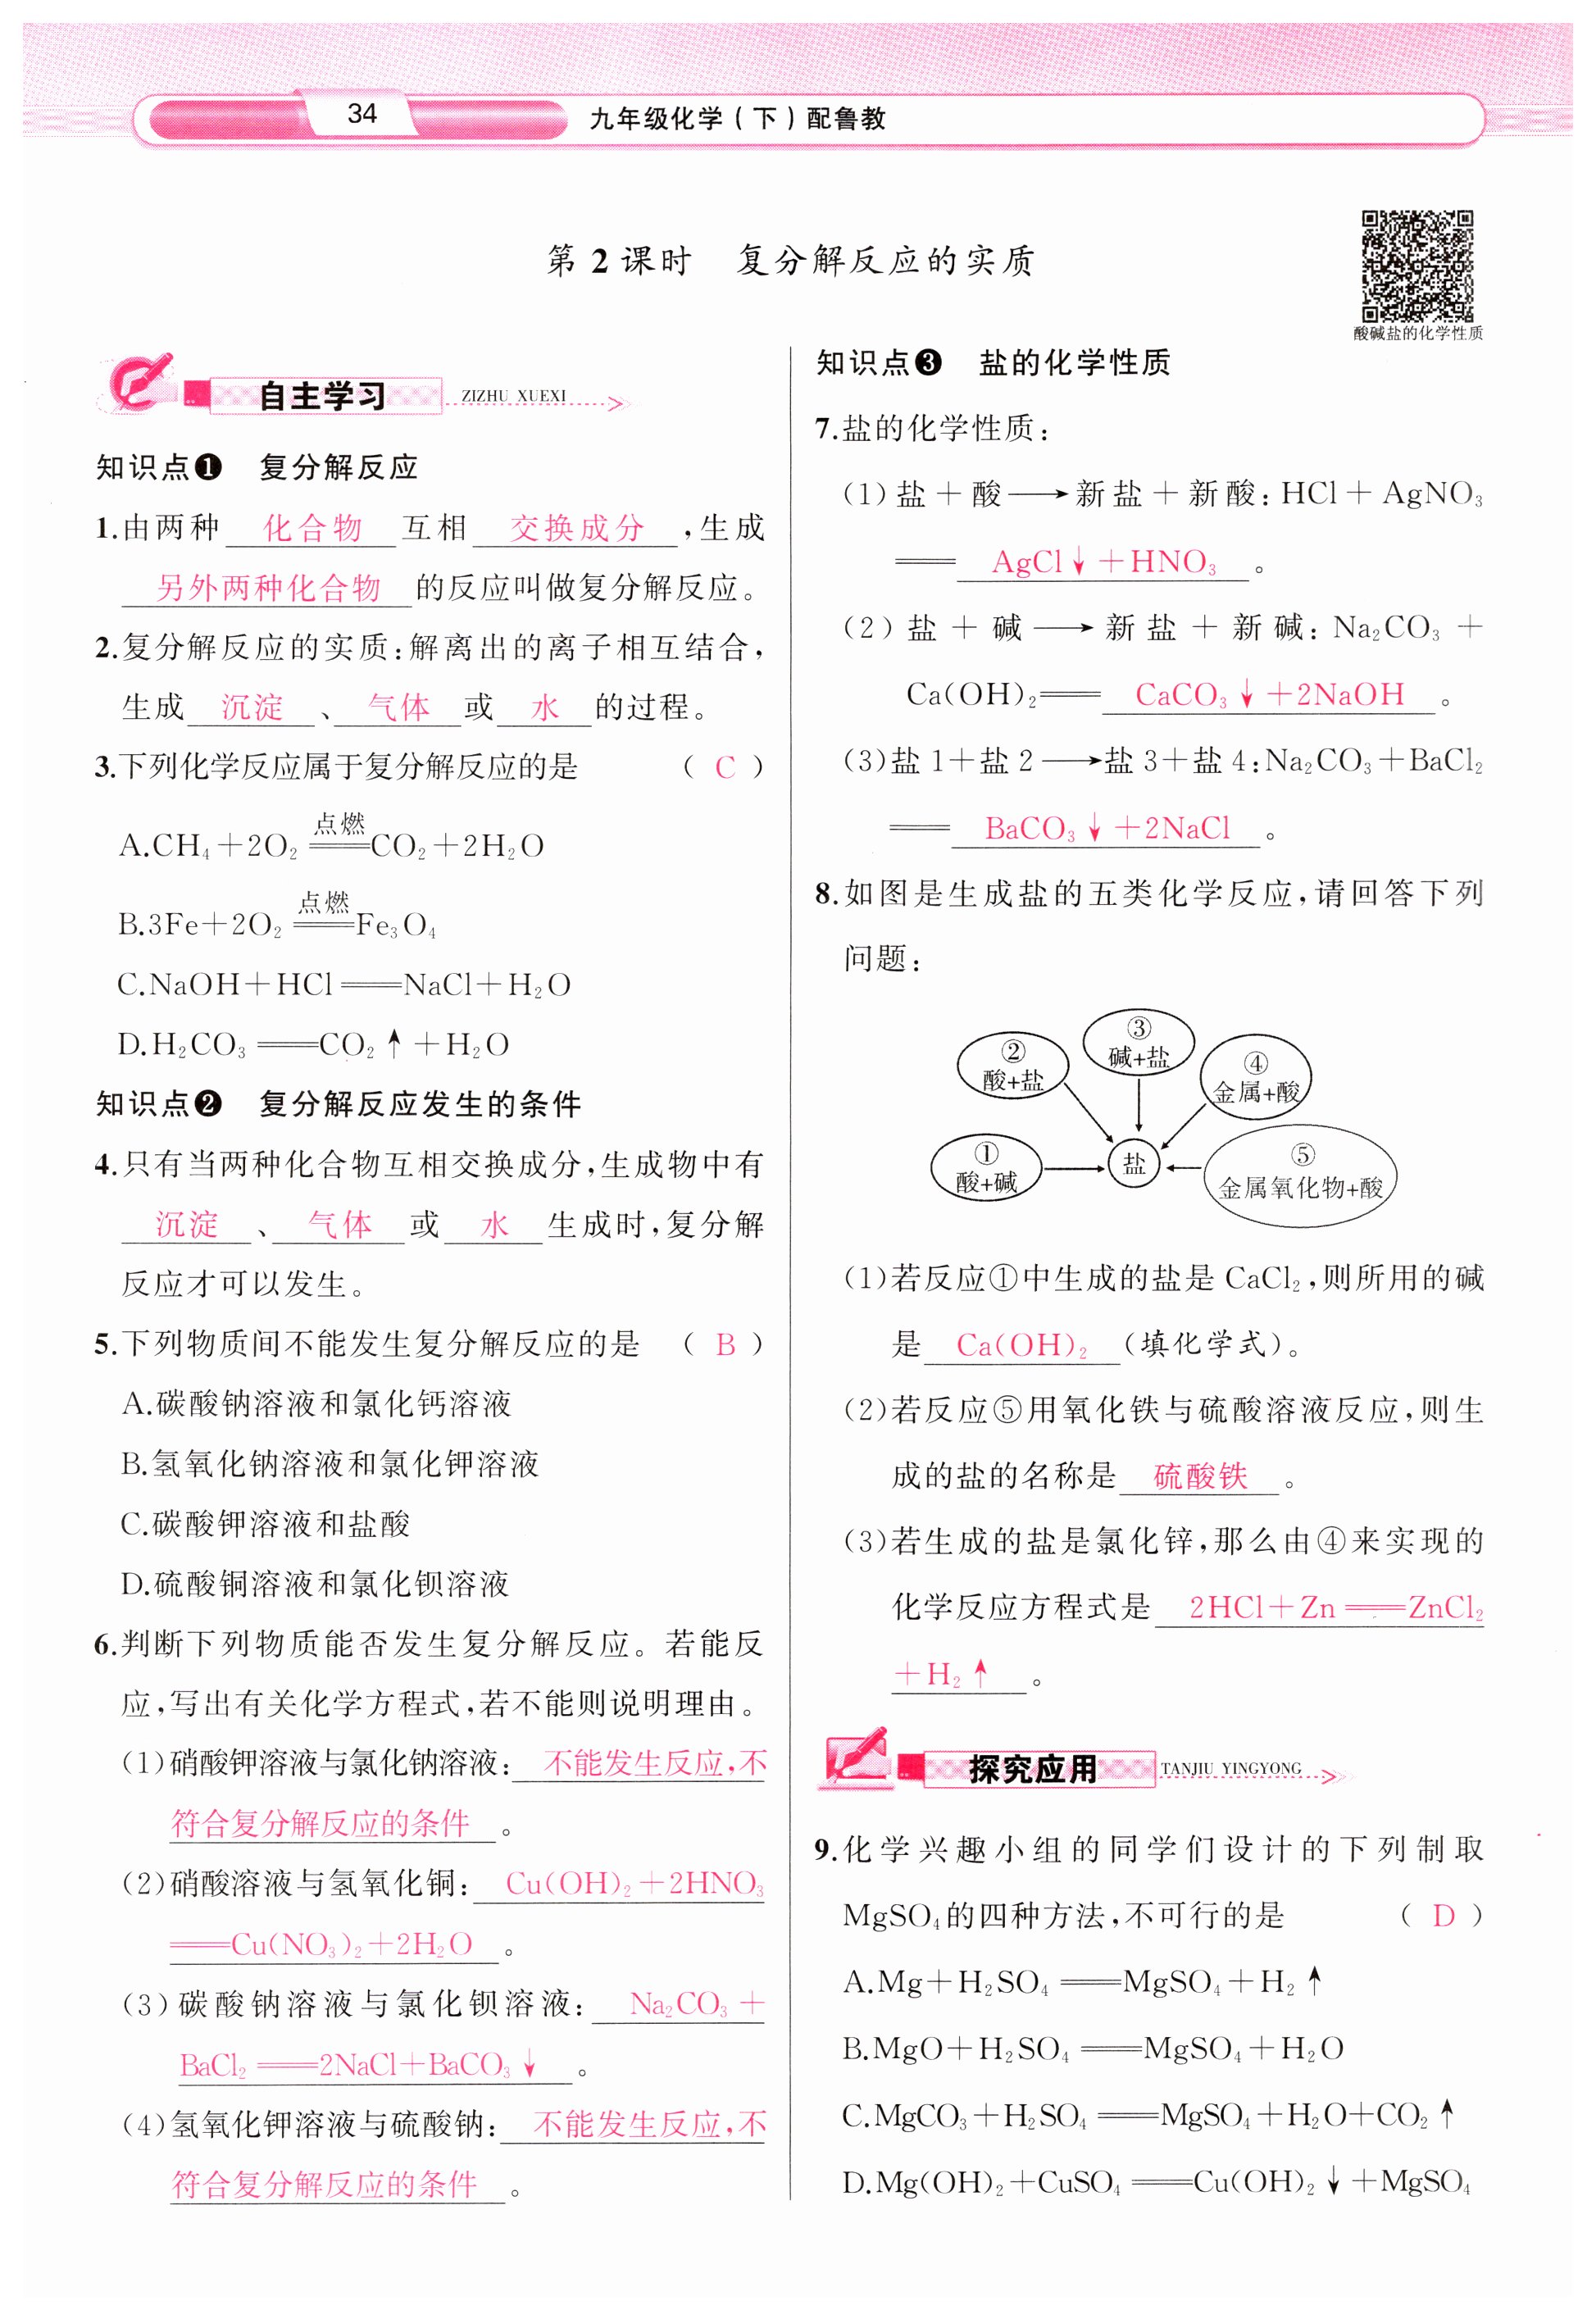 34
九年级化学(下)配鲁教
第2课时 复分解反应的实质
酸碱盐的化学性质
自主学习 ZIZHU XUEXI
知识点❶ 复分解反应
1.由两种 化合物 互相 交换成分 ,生成
另外两种化合物 的反应叫做复分解反应。
2.复分解反应的实质:解离出的离子相互结合,
生成 沉淀 、 气体 或 水 的过程。
3.下列化学反应属于复分解反应的是 ( C )
A.CH₄+2O₂ 点燃═══ CO₂+2H₂O
B.3Fe+2O₂ 点燃═══ Fe₃O₄
C.NaOH+HCl═══NaCl+H₂O
D.H₂CO₃═══CO₂↑+H₂O
知识点❷ 复分解反应发生的条件
4.只有当两种化合物互相交换成分,生成物中有
沉淀 、 气体 或 水 生成时,复分解
反应才可以发生。
5.下列物质间不能发生复分解反应的是 ( B )
A.碳酸钠溶液和氯化钙溶液
B.氢氧化钠溶液和氯化钾溶液
C.碳酸钾溶液和盐酸
D.硫酸铜溶液和氯化钡溶液
6.判断下列物质能否发生复分解反应。若能反
应,写出有关化学方程式,若不能则说明理由。
(1)硝酸钾溶液与氯化钠溶液: 不能发生反应,不
符合复分解反应的条件 。
(2)硝酸溶液与氢氧化铜: Cu(OH)₂+2HNO₃
═══Cu(NO₃)₂+2H₂O 。
(3)碳酸钠溶液与氯化钡溶液: Na₂CO₃+
BaCl₂═══2NaCl+BaCO₃↓ 。
(4)氢氧化钾溶液与硫酸钠: 不能发生反应,不
符合复分解反应的条件 。
知识点❸ 盐的化学性质
7.盐的化学性质:
(1)盐+酸⟶新盐+新酸:HCl+AgNO₃
═══ AgCl↓+HNO₃ 。
(2)盐+碱⟶新盐+新碱:Na₂CO₃+
Ca(OH)₂═══ CaCO₃↓+2NaOH 。
(3)盐1+盐2⟶盐3+盐4:Na₂CO₃+BaCl₂
═══ BaCO₃↓+2NaCl 。
8.如图是生成盐的五类化学反应,请回答下列
问题:
③
碱+盐
②
酸+盐
④
金属+酸
①
酸+碱
盐
⑤
金属氧化物+酸
(1)若反应①中生成的盐是CaCl₂,则所用的碱
是 Ca(OH)₂ (填化学式)。
(2)若反应⑤用氧化铁与硫酸溶液反应,则生
成的盐的名称是 硫酸铁 。
(3)若生成的盐是氯化锌,那么由④来实现的
化学反应方程式是 2HCl+Zn═══ZnCl₂
+H₂↑ 。
探究应用 TANJIU YINGYONG
9.化学兴趣小组的同学们设计的下列制取
MgSO₄的四种方法,不可行的是 ( D )
A.Mg+H₂SO₄═══MgSO₄+H₂↑
B.MgO+H₂SO₄═══MgSO₄+H₂O
C.MgCO₃+H₂SO₄═══MgSO₄+H₂O+CO₂↑
D.Mg(OH)₂+CuSO₄═══Cu(OH)₂↓+MgSO₄